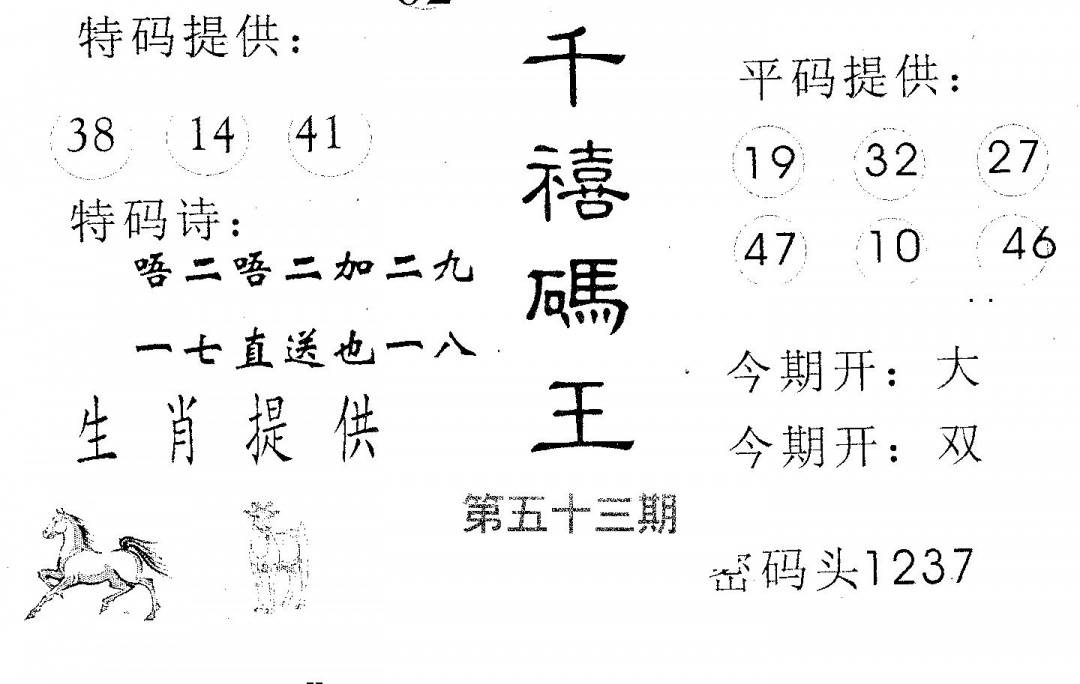 特码提供：
38 14 41
特码诗：
唔二唔二加二九
一七直送也一八
生肖提供
千禧碼王
第五十三期
平码提供：
19 32 27
47 10 46
今期开：大
今期开：双
密码头1237